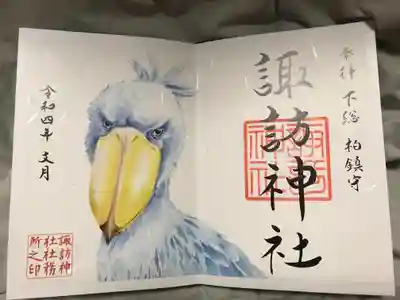 奉拝 下総 柏鎮守
諏訪神社
令和四年 文月
諏訪神
社社務
所之印